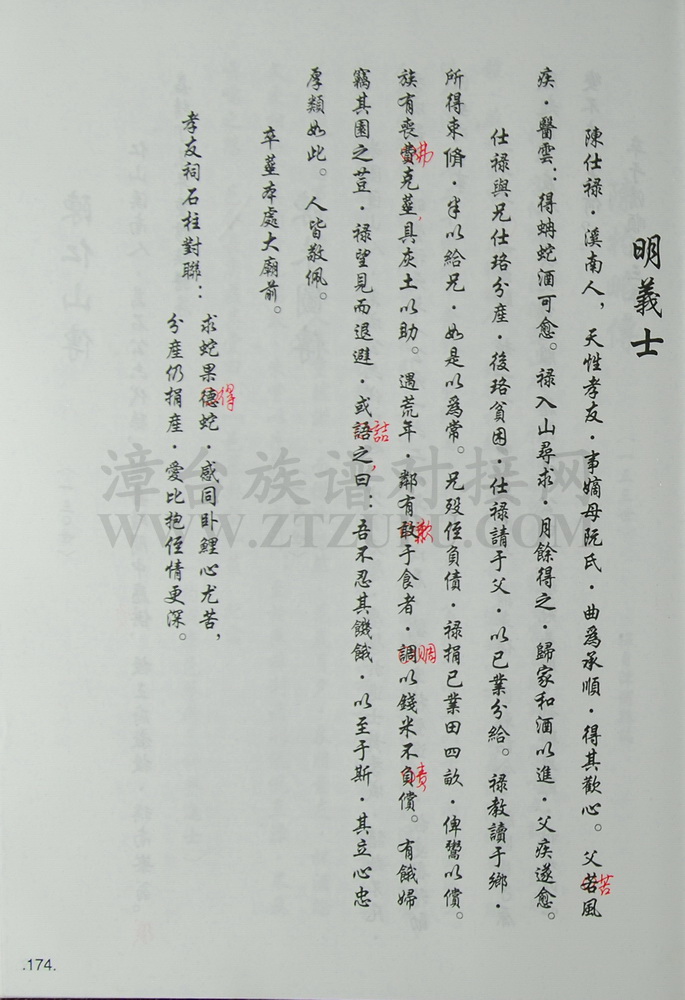 明義士
陳仕禄·溪南人，天性孝友·事嫡母阮氏·曲爲承順·得其歡心。父若風
苦
疾·醫雲：得蚺蛇酒可愈。禄入山尋求·月餘得之·歸家和酒以進·父疾遂愈。
仕禄與兄仕珞分産·後珞貧困·仕禄請于父·以已業分給。禄教讀于鄉·
所得束脩·半以給兄·如是以爲常。兄殁侄負債·禄捐已業田四畝·俾鬻以償。
族有喪賣克塟，具灰土以助。遇荒年·鄰有敢于食者·調以錢米不負償。有餓婦
弗
歉
賙
責
竊其園之荳·禄望見而退避·或語之，曰：吾不忍其饑餓·以至于斯·其立心忠
詰
厚類如此。人皆敬佩。
卒塟本處大廟前。
孝友祠石柱對聯：
求蛇果德蛇·感同卧鯉心尤苦，
得
分産仍捐産·愛比抱侄情更深。
漳台族谱对接网
WWW.ZTZUPU.COM
.174.